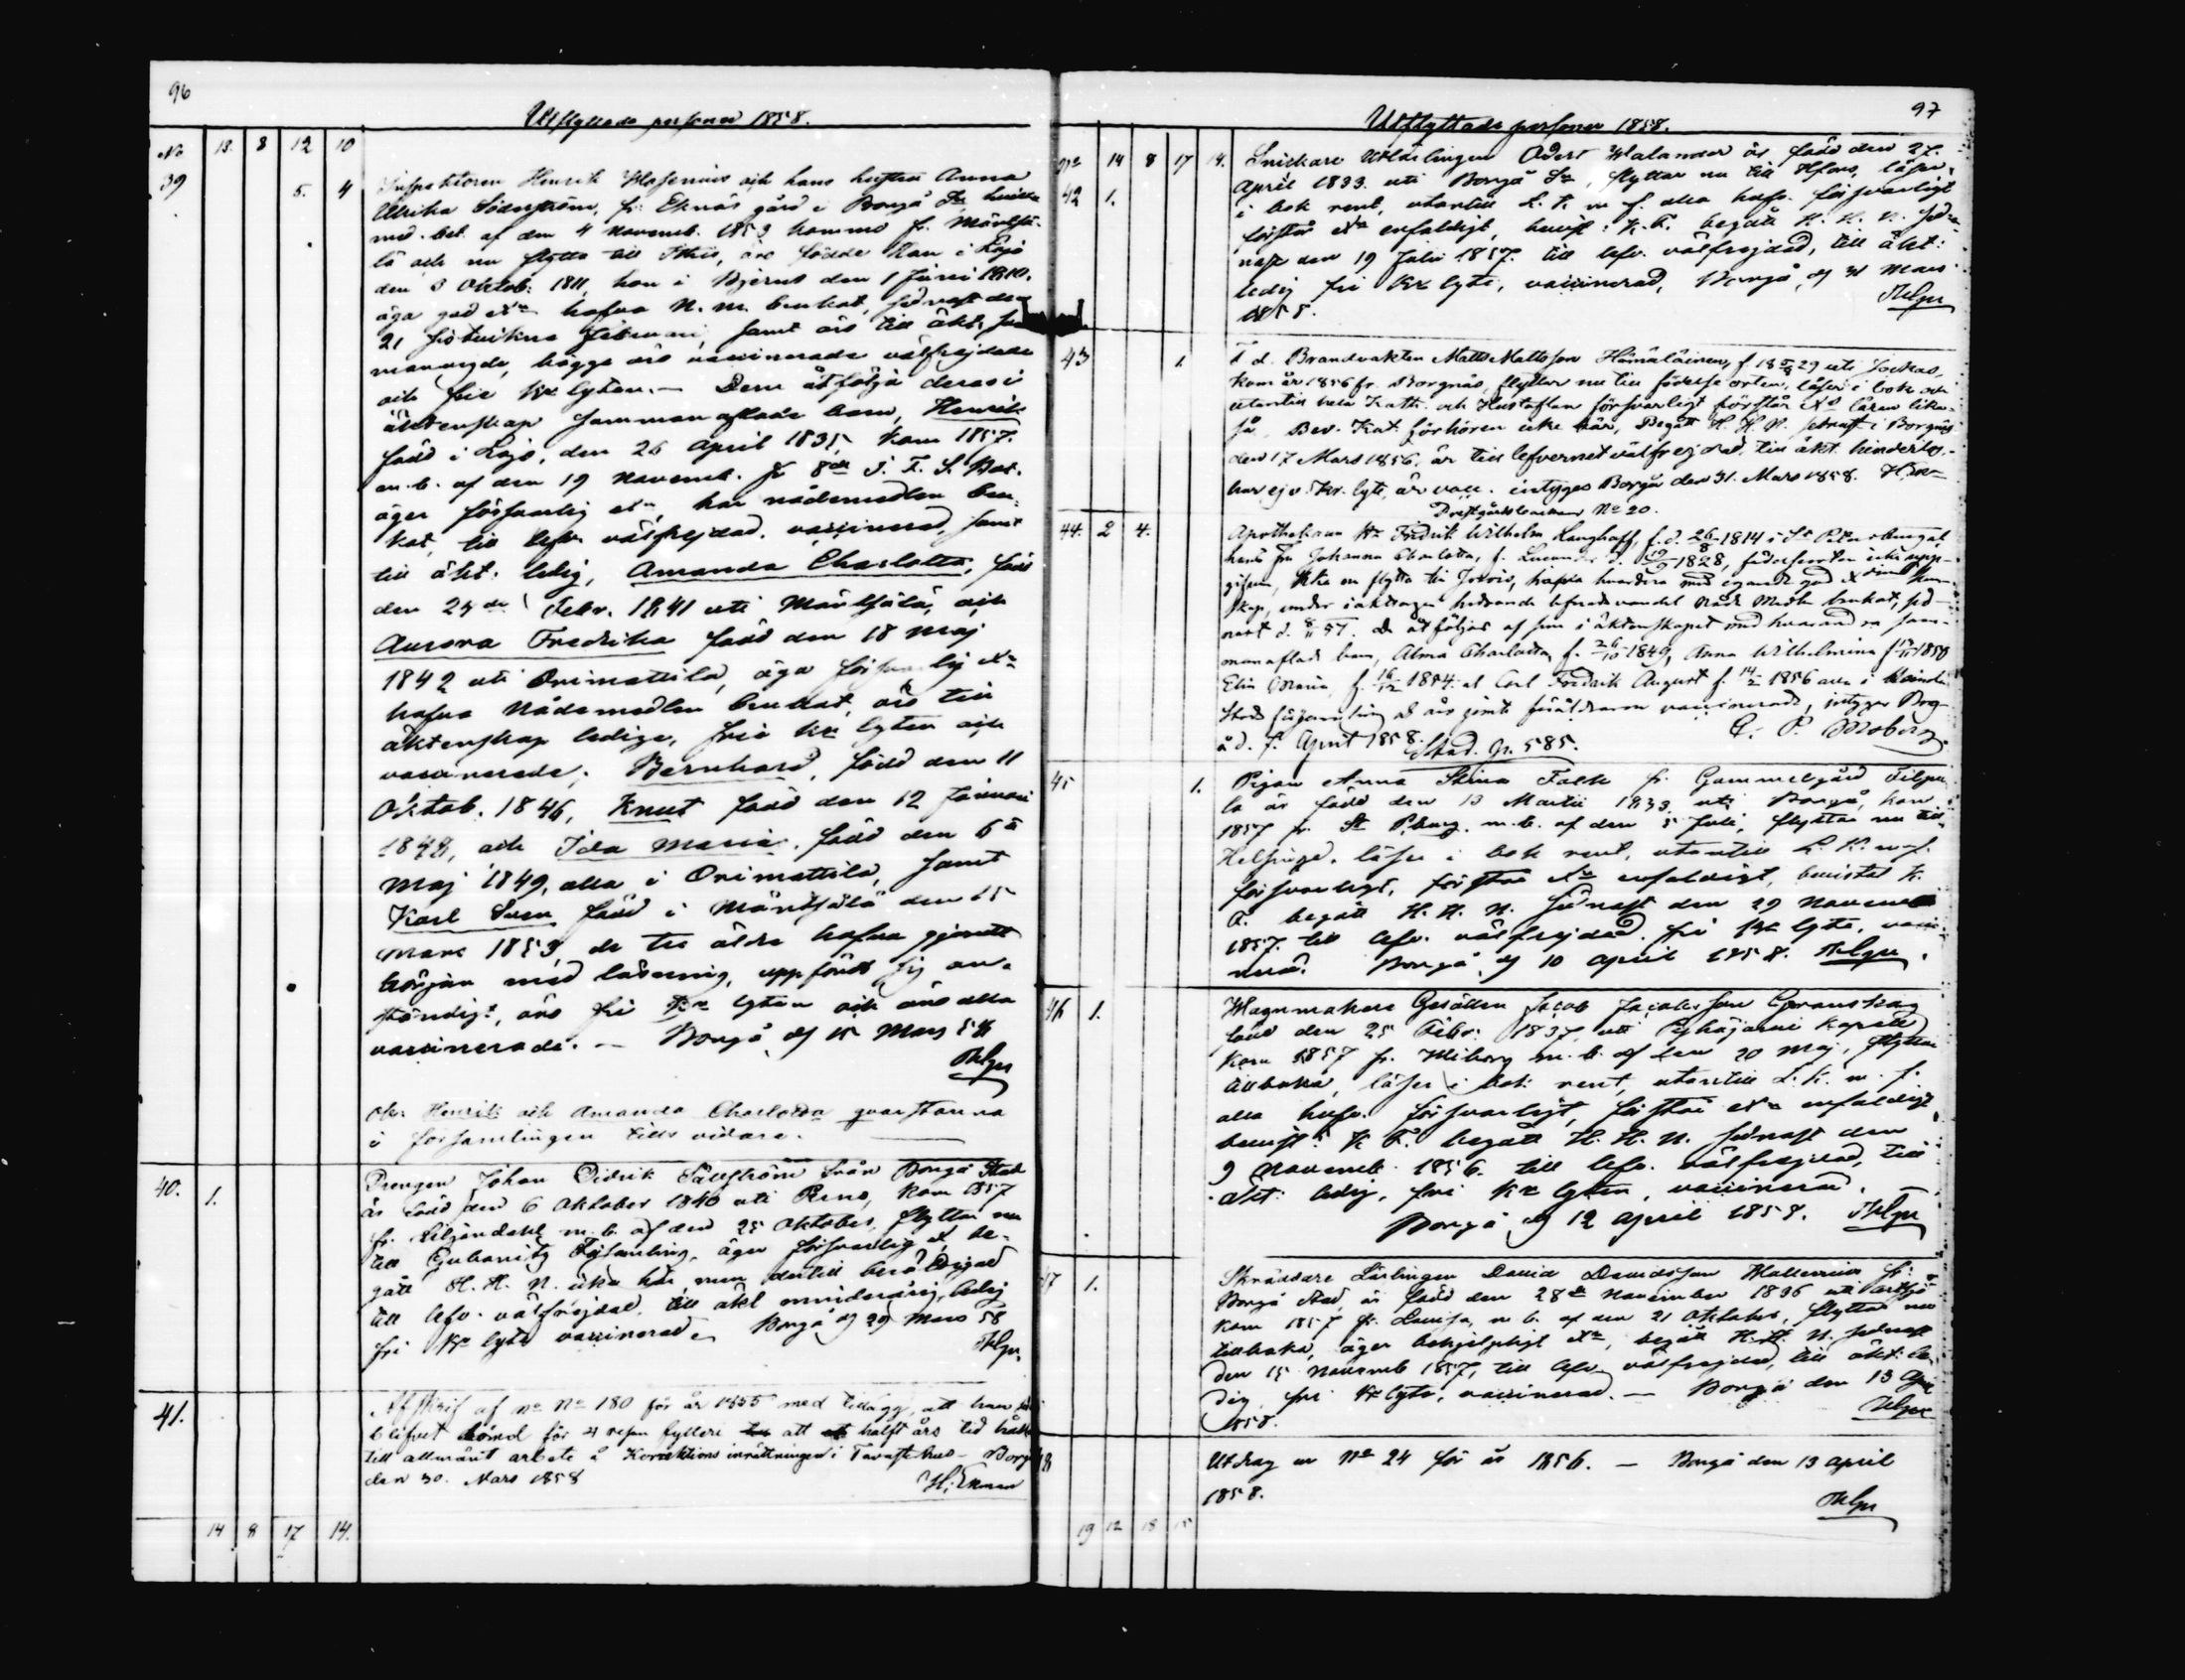 96
Utflyttade personer 1858.
No 13. 8 12 10
39 5. 4 Inspektoren Henrik Hasenius och hans hustru Anna
Ulrika Söderström, fr. Eknäs gård i Borgå Sn hvilka
med. bet. af den 4 Novemb. 1853 kommo fr. Mäntsä-
lä och nu flytta till Ithis, äro födde Han i Lojo
den 3 Oktob. 1811, hon i Bjerno den 1 Juni 1810.
äga god Xn hafva N. m. brukat, sednast den
21 sistvikne Februari, samt äro till äkt.
manvigde, bägge äro vaccinerade välfrejdade
och frie Kr lyten. — Dem åtfölja deras i
äktenskap sammanaflade barn, Henrik
född i Lojo, den 26 April 1835, kom 1857.
m. b. af den 19 Novemb. fr 8de S. F. S. Bat.
äger försvarlig Xn, har nådemedlen bru-
kat, till lefv. välfrejdad, vaccinerad, samt
till äkt. ledig, Amanda Charlotta, född
den 24de Febr. 1841 uti Mäntsälä, och
Aurora Fredrika född den 18 Maj
1842 uti Orimattila, äga försvarlig Xn
hafva Nådemedlen brukat, äro till
äktenskap ledige, frie Kr lyten och
vaccinerade; Bernhard, född den 11
Oktob. 1846, Knut född den 12 Januari
1848, och Ida Maria, född den 6
Maj 1849, alla i Orimattila, samt
Karl Sven född i Mäntsälä den 15
Mars 1853, de tre äldre hafva gjort
början med läsning, uppfört sig an-
ständigt, äro fri Kr lyten och äro alla
vaccinerade. — Borgå, df 15 Mars 58
Obs. Henrik och Amanda Charlotta qvarstanna
i församlingen tills vidare.
40. 1. Drengen Johan Didrik Sällström från Borgå Stad
är född den 6 Oktober 1840 uti Perno, kom 1857
fr. Liljendahl m. b. af den 25 Oktober, flyttar nu
till Gubanitz Församling, äger försvarlig X, be-
gått H. H. N. icke här, men dertill berättigad
till lefv. välfrejdad, till äkt minderårig, ledig
fri Kr lyte vaccinerad, Borgå df 29 Mars 58
41. Afskrif af no No 180 för år 1855 med tillägg, att han
blifvit dömd för 4 resan fylleri att halft års tid hållas
till allmänt arbete å Korrektions inrättningen i Tavastehus — Borgå
den 30. Mars 1858 H. Ekman
14 8 17 14.
97
Utflyttade personer 1858.
No 14 8 17 14.
42 1. Snickare Utlärlingen Odert Walander är född den 27.
April 1833. uti Borgå Sn, flyttar nu till Hfors, läser
i bok rent, utantill L. K. m. f. alla hufv. försvarligt
förstår Xn enfaldigt, bevist. K. F. begått H. H. N. sed-
nast den 19 Juli 1857. till lefv. välfrejdad, till äkt:
ledig fri Kr lyte, vaccinerad, Borgå, df 31 Mars
1858.
43 1. F d. Brandvakten Matts Mattsson Hämäläinen, f 18 29 uti Jockas,
kom år 1856 fr. Borgnäs, flyttar nu till födelse orten, läser i bok och
utantill hela Kath. och Hustaflan försvarligt förstår Xs läran lika-
så, Bev. Kat. förhören icke här, Begått H. H. N. sednast i Borgnäs
den 17 Mars 1856, är till lefvernet välfrejdad, till äkt. hinderlös,
har ej v. Kr. lyte, är vacc. intygas Borgå den 31. Mars 1858.
Prestgårdsbacken No 20.
44. 2 4. Apothekaren Hr Fredrik Wilhelm Langhoff, f. d. 26/8 1814 i St Petersburg
hans Fru Johanna Charlotta, f. d. 19/9 1828, födelseorten icke upp-
gifven, Hka nu flytta till Jokkis, hafva hvardera med egande god Xdoms kun-
skap, under iakttagen hedrande lefnadsvandel Nåde Medlen brukat, sed-
nast d. 57. De åtföljas af sine i äktenskapet med hvarandra sam-
manaflade barn, Alma Charlotta, f. 26/10 1849, Anna Wilhelmina f. 1850
Elin Maria, f. 16/12 1854, et Carl Fredrik August f. 14/2 1856
Stads församling och äro jemte föräldrarna vaccinerade, intygar Borg-
å d. 7. April 1858. C. P. Moberg.
Stad. N. 585.
45 1. Pigan Anna Stina Falk fr. Gammelgård Tilgu
la är född den 13 Martii 1833. uti Borgå, kom
1857 fr. St Pburg. m. b. af den 5 Juli, flyttar nu till
Helsinge, läser i bok rent, utantill L. K. m. f.
försvarligt, förstår Xn enfaldigt, bevistat K.
F. begått H. H. N. sednast den 29 November
1857. till lefv. välfrejdad. fri Kr lyte, vacci-
nerad. Borgå, df 10 April 1858.
46 1. Wagnmakare Gesällen Jacob Jacobsson Granskog
född den 25 Febr. 1837, uti Pyhäjärvi Kapell
kom 1857 fr. Wiborg m. b. af den 20 Maj, flyttar
tillbaka, läser i bok rent, utantill L. K. m. f.
alla hufv. försvarligt, förstår Xn enfaldigt
bevist: K F. begått H. H. N. sednast den
9 Novemb. 1856. till lefv. välfrejdad, till
äkt: ledig, fri Kr lyten, vaccinerad. —
Borgå df 12 April 1858.
47 1. Skräddare Lärlingen David Davidsson Wallenius fr:
Borgå Stad, är född den 28de November 1836 uti Artsjö
kom 1857 fr. Lovisa, m b. af den 21 Oktober, flyttar nu
tillbaka, äger behjelpligt Xn, begått H. H. N. sednast
den 15 Novemb 1857, till lefv. välfrejdad, till äkt: le-
dig, fri Kr lyte, vaccinerad. — Borgå den 13 April
1858.
48 Utdrag ur No 24 för år 1856. — Borgå den 13 April
1858.
19 12 18 15